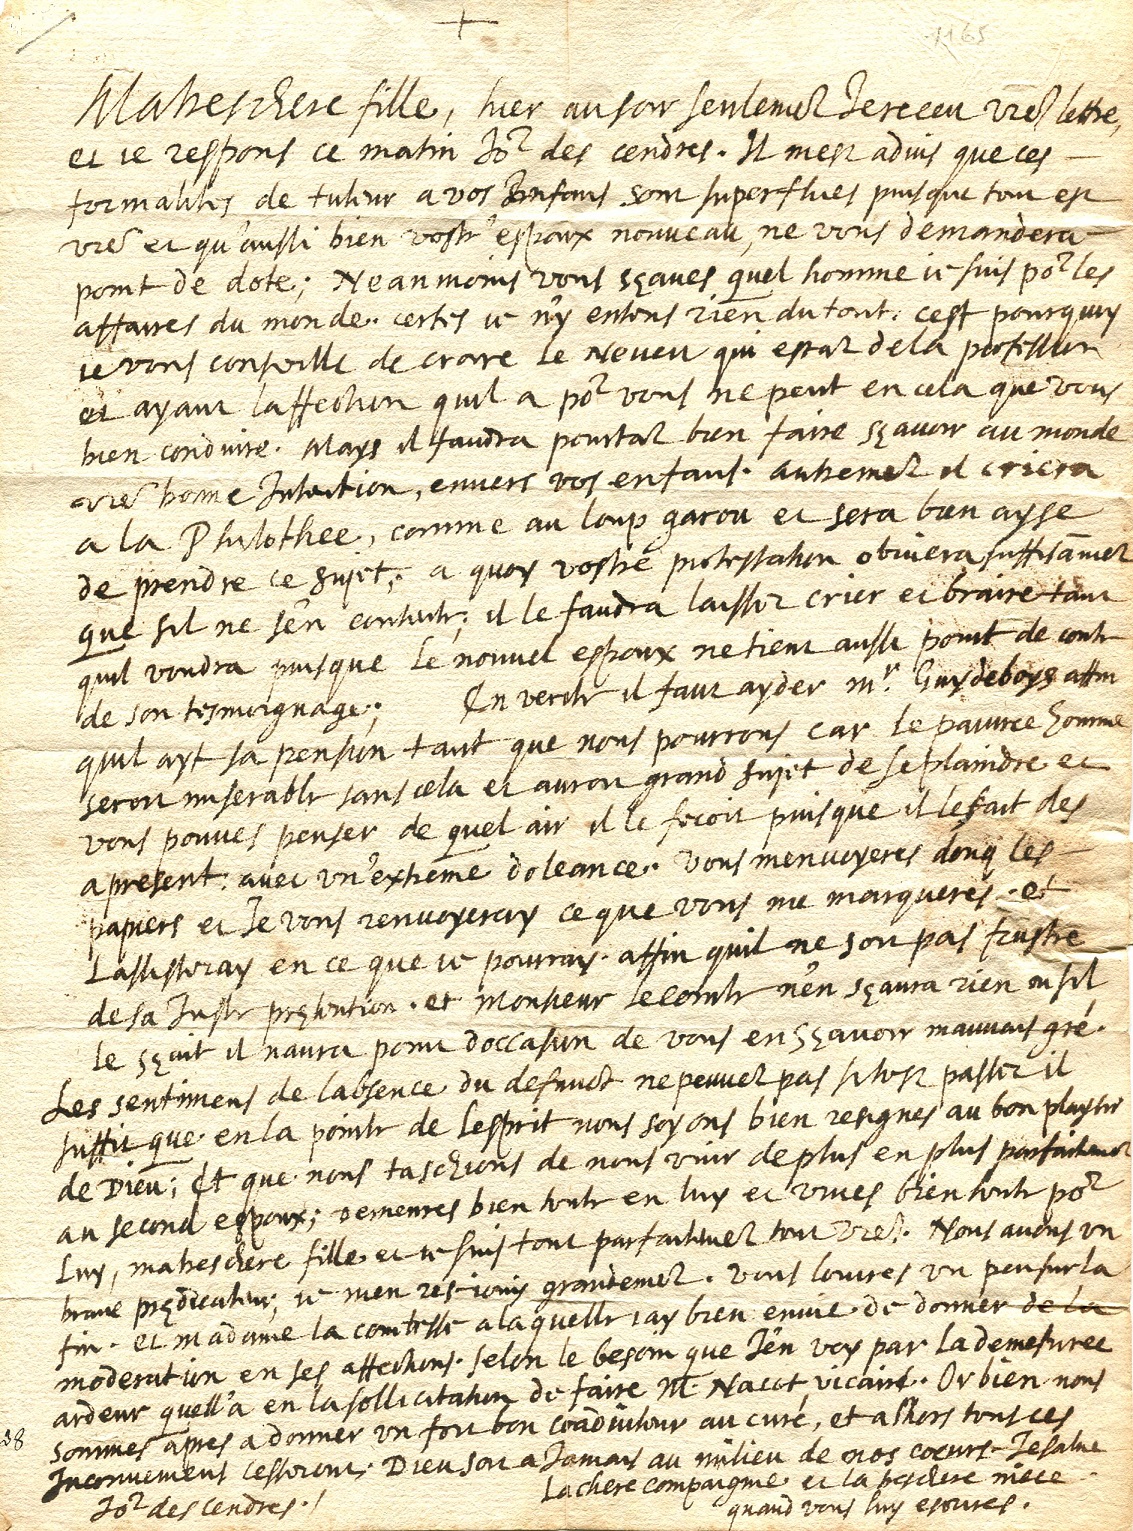 +
1165
Matreschere fille, hier au soir seulemet Ie receu vre lettre,
et ie respons ce matin Jor des cendres. Il mest advis que ces
formalités de tuteur a vos Enfans sont superflues puisque tout est
vre et qu'aussi bien vostr' espoux nouveau, ne vous demandera
point de dote; Neanmoins vous sçaves quel homme ie suis por les
affaires du monde. certes ie n'y entens rien du tout. cest pourquoy
ie vous conseille de croire le Neveu qui estat de la profession
et ayant laffection quil a por vous ne peut en cela que vous
bien conduire. Mays il faudra pourtat bien faire sçavoir au monde
vre bonne Intention, envers vos enfans. autremet il criera
a la Philothee, comme au loup garou et sera bien ayse
de prendre ce sujet, a quoy vostre protestation obviera suffisamet
que sil ne s'en contente; il le faudra laisser crier et braire tant
quil voudra puisque le nouvel espoux ne tient aussi point de conte
de son tesmoignage; En verité il faut ayder mr. Guydeboys affin
quil ayt sa pension tant que nous pourrons car le pauvre homme
seroit miserable sans cela et auroit grand sujet de se plaindre et
vous pouves penser de quel air il le feroit puisque il le fait des
apresent avec un' extreme doleance. Vous menvoyeres donq les
papiers et Ie vous renvoyeray ce que vous me marqueres. et
Lassisteray en ce que ie pourray. affin quil ne soit pas frustré
de sa Juste pretention. et Monsieur le Comte n'en sçaura rien ou sil
le sçait il naura point doccasion de vous en sçavoir mauvais gré.
Les sentimens de labsence du defunct ne peuvet pas si tost passer il
suffit que en la pointe de lesprit nous soyons bien resignes au bon playsir
de Dieu; Et que nous taschions de nous unir de plus en plus parfaitemet
au second espoux; demeures bien toute en luy et vives bien toute por
Luy, matreschere fille et ie suis tout parfaitemet tout vre. Nous avons un
brave predicateur; ie men res-iouis grandemet. Vous loures un peu sur la
fin. et madame la comtesse a laquelle iay bien envie de donner de la
moderation en ses affections. selon le besoin que Ien voy par la demesuree
ardeur quell'a en la sollicitation de faire Mr Nacot vicaire. Or bien nous
sommes apres a donner un fort bon coadiuteur au curé, et alhors tous ces
Inconveniens cesseront; Dieu soit a Jamais au milieu de nos coeurs Ie salue
La chere compaigne. et la treschere niece
Jor des cendres./ quand vous luy escrires.
38